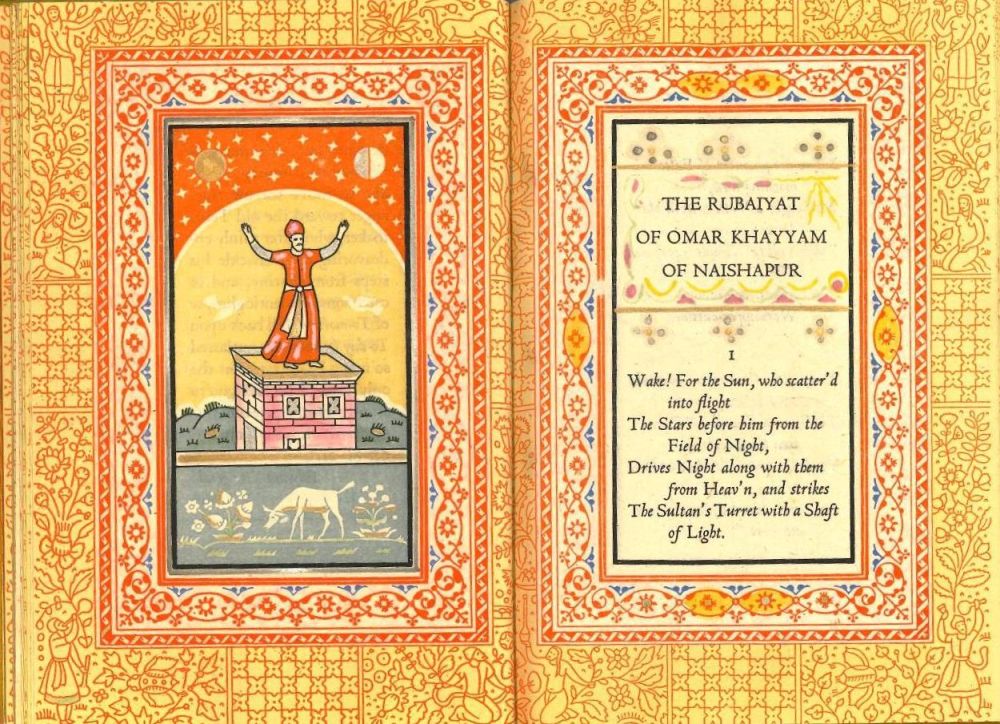 THE RUBAIYAT
OF OMAR KHAYYAM
OF NAISHAPUR
I
Wake! For the Sun, who scatter'd
into flight
The Stars before him from the
Field of Night,
Drives Night along with them
from Heav'n, and strikes
The Sultan's Turret with a Shaft
of Light.